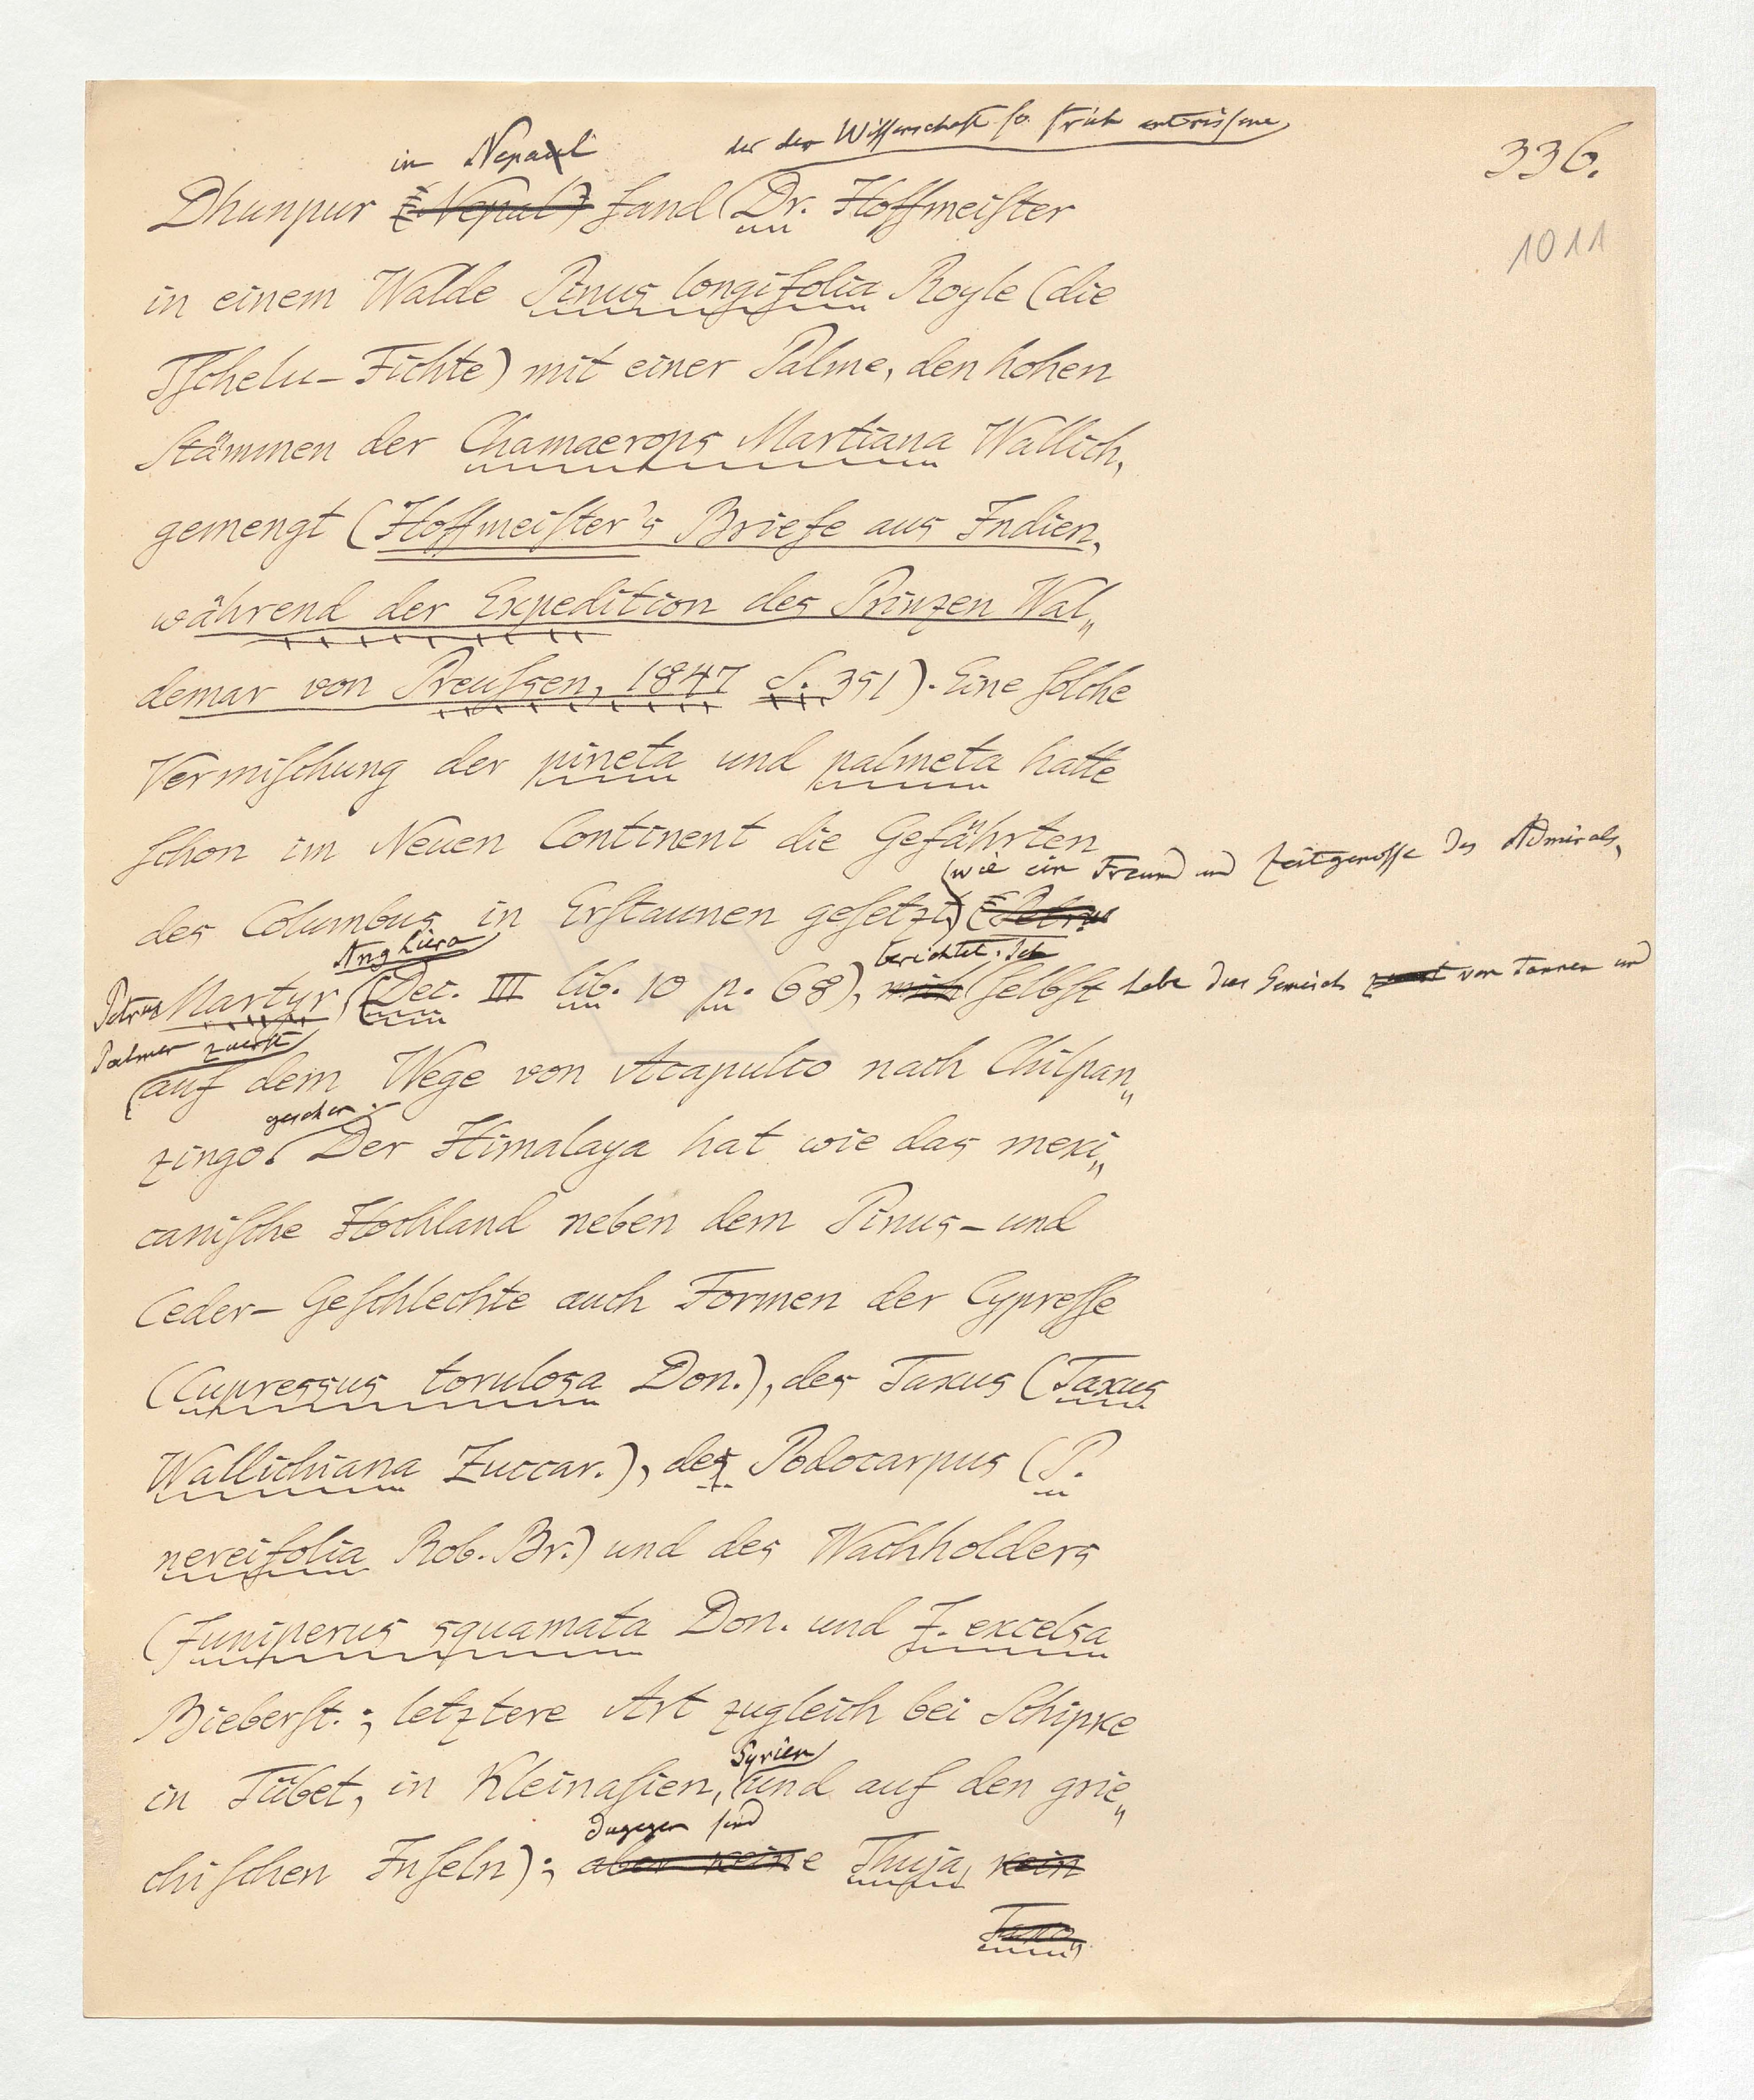 336.
1011
in Nepal der der Wissenschaft so früh entrissene
Dhunpur (Nepal) fand Dr. Hoffmeister
in einem Walde Pinus longifolia Royle (die
Tschelu-Fichte) mit einer Palme, den hohen
Stämmen der Chamaerops Martiana Wallich,
gemengt (Hoffmeister's Briefe aus Indien,
während der Expedition des Prinzen Wal„
demar von Preussen, 1847 S. 351). Eine solche
Vermischung der pineta und palmeta hatte
schon im Neuen Continent die Gefährten
(wie ein Freund und Zeitgenosse des Admirals,
des Columbus in Erstaunen gesetzt) (Petrus
Anghiera berichtet. Ich
Petrus Martyr (Dec. III lib. 10 p. 68), mich selbst habe dies Gemisch zuerst von Tannen und
Palmen zuerst
auf dem Wege von Acapulco nach Chilpan„
gesehen.
zingo. Der Himalaya hat wie das mexi„
canische Hochland neben dem Pinus- und
Ceder-Geschlechte auch Formen der Cypresse
(Cupressus torulosa Don.), des Taxus (Taxus
Wallichiana Zuccar.), des Podocarpus (P.
nereifolia Rob. Br.) und des Wachholders
(Juniperus squamata Don. und J. excelsa
Bieberst.; letztere Art zugleich bei Schipke
in Tübet, in Kleinasien, Syrien und auf den grie„
dagegen sind
chischen Inseln); aber keine Thuja, kein
Taxo